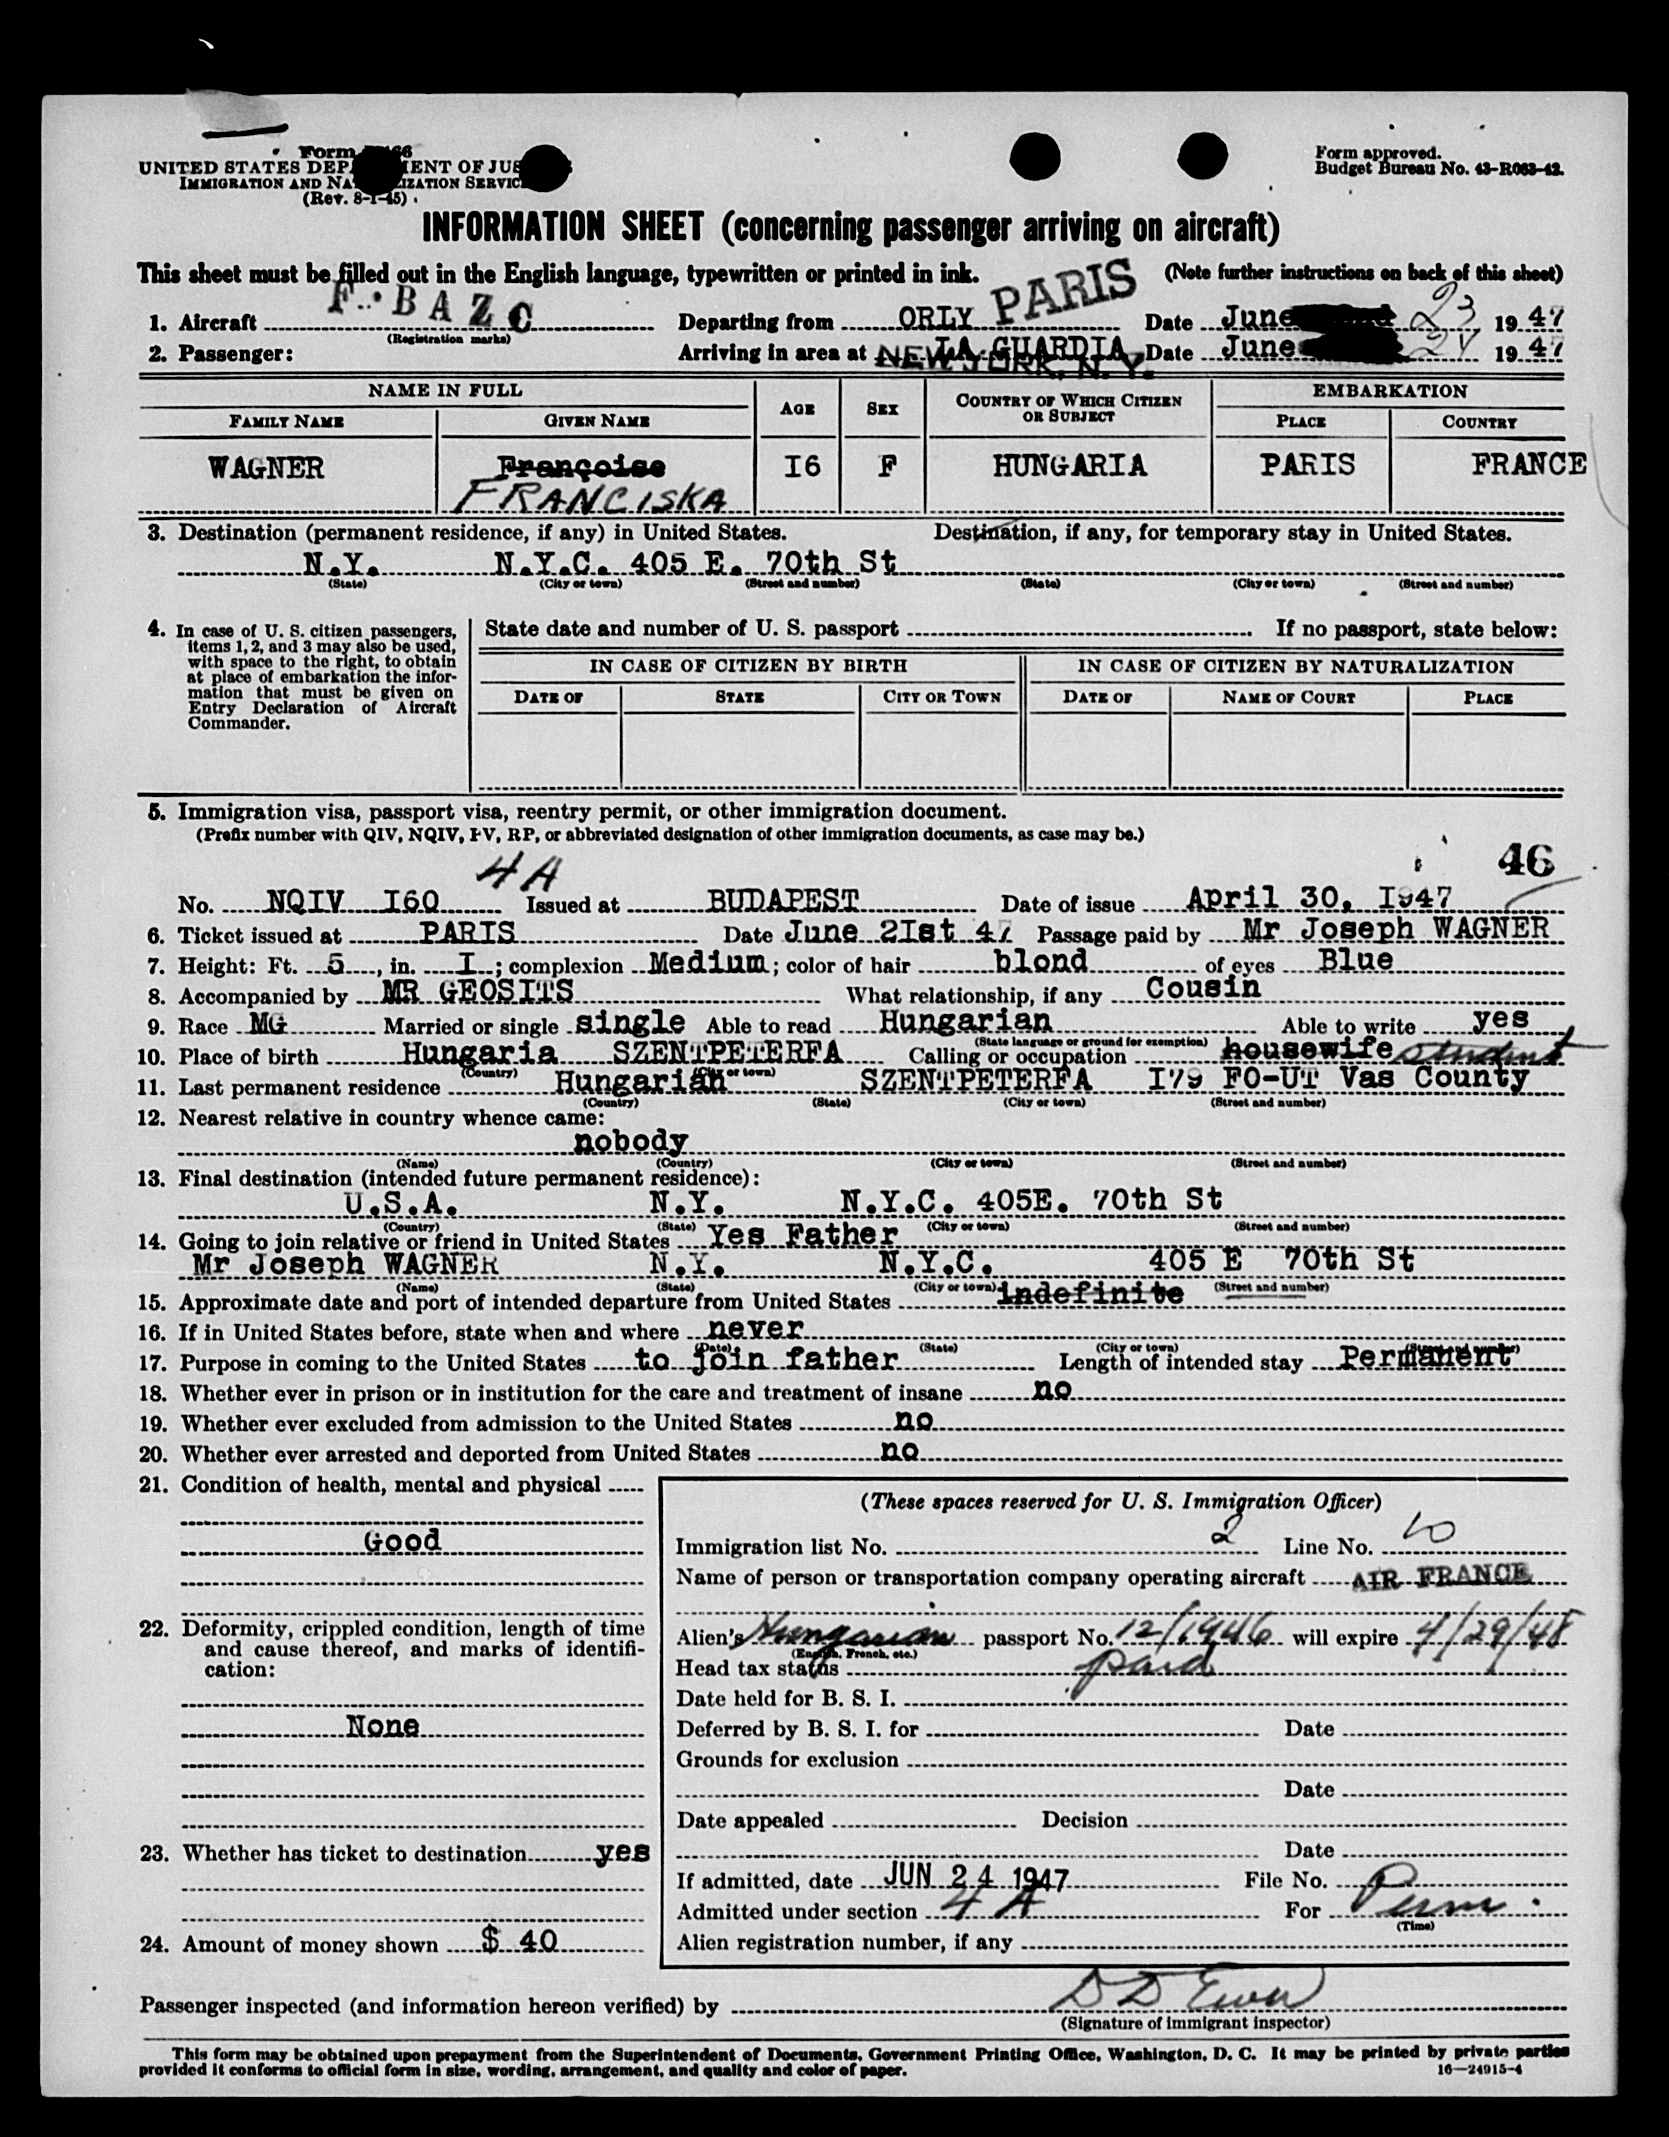 Form
UNITED STATES DEPARTMENT OF JUSTICE
IMMIGRATION AND NATURALIZATION SERVICE
(Rev. 8-1-45)
Form approved.
Budget Bureau No. 43-R063-42.
INFORMATION SHEET (concerning passenger arriving on aircraft)
This sheet must be filled out in the English language, typewritten or printed in ink. (Note further instructions on back of this sheet)
1. Aircraft F·BAZC Departing from ORLY PARIS Date June 23 1947
(Registration marks)
2. Passenger: Arriving in area at LA GUARDIA NEW YORK, N. Y. Date June 24 1947
NAME IN FULL AGE SEX COUNTRY OF WHICH CITIZEN OR SUBJECT EMBARKATION
FAMILY NAME GIVEN NAME PLACE COUNTRY
WAGNER Françoise I6 F HUNGARIA PARIS FRANCE
FRANCISKA
3. Destination (permanent residence, if any) in United States. Destination, if any, for temporary stay in United States.
N.Y. N.Y.C. 405 E. 70th St
(State) (City or town) (Street and number) (State) (City or town) (Street and number)
4. In case of U. S. citizen passengers, items 1, 2, and 3 may also be used, with space to the right, to obtain at place of embarkation the information that must be given on Entry Declaration of Aircraft Commander.
State date and number of U. S. passport If no passport, state below:
IN CASE OF CITIZEN BY BIRTH IN CASE OF CITIZEN BY NATURALIZATION
DATE OF STATE CITY OR TOWN DATE OF NAME OF COURT PLACE
5. Immigration visa, passport visa, reentry permit, or other immigration document.
(Prefix number with QIV, NQIV, PV, RP, or abbreviated designation of other immigration documents, as case may be.)
4A 46
No. NQIV I60 Issued at BUDAPEST Date of issue April 30, I947
6. Ticket issued at PARIS Date June 2Ist 47 Passage paid by Mr Joseph WAGNER
7. Height: Ft. 5, in. I; complexion Medium; color of hair blond of eyes Blue
8. Accompanied by MR GEOSITS What relationship, if any Cousin
9. Race MG Married or single single Able to read Hungarian Able to write yes
(State language or ground for exemption)
10. Place of birth Hungaria SZENTPETERFA Calling or occupation housewife student
(Country) (City or town)
11. Last permanent residence Hungarian SZENTPETERFA I79 FO-UT Vas County
(Country) (State) (City or town) (Street and number)
12. Nearest relative in country whence came:
nobody
(Name) (Country) (City or town) (Street and number)
13. Final destination (intended future permanent residence):
U.S.A. N.Y. N.Y.C. 405E. 70th St
(Country) (State) (City or town) (Street and number)
14. Going to join relative or friend in United States Yes Father
Mr Joseph WAGNER N.Y. N.Y.C. 405 E 70th St
(Name) (State) (City or town) (Street and number)
15. Approximate date and port of intended departure from United States indefinite
16. If in United States before, state when and where never
(Date) (State) (City or town) (Street and number)
17. Purpose in coming to the United States to join father Length of intended stay Permanent
18. Whether ever in prison or in institution for the care and treatment of insane no
19. Whether ever excluded from admission to the United States no
20. Whether ever arrested and deported from United States no
21. Condition of health, mental and physical
Good
22. Deformity, crippled condition, length of time and cause thereof, and marks of identification:
None
23. Whether has ticket to destination yes
24. Amount of money shown $ 40
(These spaces reserved for U. S. Immigration Officer)
Immigration list No. 2 Line No. 10
Name of person or transportation company operating aircraft AIR FRANCE
Alien's Hungarian passport No. 12/1946 will expire 4/29/48
(English, French, etc.)
Head tax status paid
Date held for B. S. I.
Deferred by B. S. I. for Date
Grounds for exclusion
Date
Date appealed Decision
Date
If admitted, date JUN 24 1947 File No.
Admitted under section 4 A For Perm.
(Time)
Alien registration number, if any
Passenger inspected (and information hereon verified) by
(Signature of immigrant inspector)
This form may be obtained upon prepayment from the Superintendent of Documents, Government Printing Office, Washington, D. C. It may be printed by private parties
provided it conforms to official form in size, wording, arrangement, and quality and color of paper. 16—24915-4